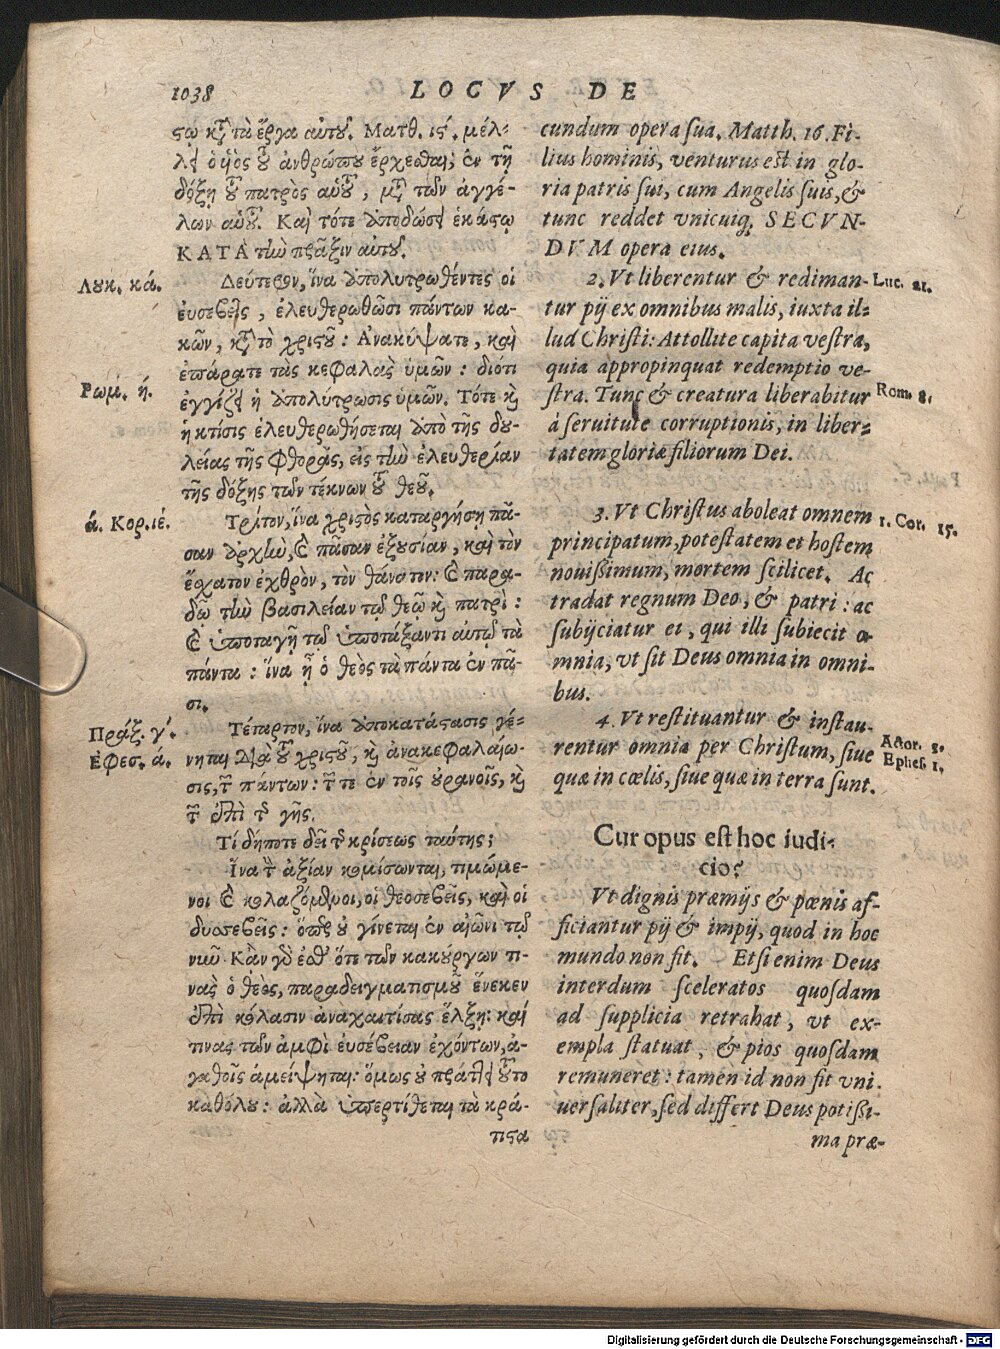 1038
LOCVS DE
ςῳ κ̀ τὰ ἔργα αὐτοῦ. Ματθ. ιϛ΄. μέλ-
λει ὁ ὑὸς τοῦ ἀνθρώπου ἔρχεσθαι, ἐν τῇ
δόξῃ τοῦ πατρὸς αὑτοῦ, μετὰ τῶν ἀγγέ-
λων αὑτοῦ. Καὶ τότε ἀποδώσει ἑκάστῳ
ΚΑΤΑ τὴν πρᾶξιν αὐτοῦ.
Λουκ. κά.
Δεύτερον, ἵνα ἀπολυτρωθέντες οἱ
ἐυσεβεῖς, ἐλευθερωθῶσι πάντων κα-
κῶν, κατὰ τὸ χριστοῦ: Ἀνακύψατε, καὶ
ἐπάρατε τὰς κεφαλὰς ὑμῶν: διότι
Ρωμ. ή.
ἐγγίζει ἡ ἀπολύτρωσις ὑμῶν. Τότε καὶ
ἡ κτίσις ἐλευθερωθήσεται ἀπὸ τῆς δου-
λείας τῆς φθορᾶς, εἰς τὴν ἐλευθερίαν
τῆς δόξης τῶν τέκνων τοῦ θεοῦ.
ά. Κορ. ιέ.
Τρίτον, ἵνα χριστὸς καταργήσῃ πᾶ-
σαν ἀρχὴν, καὶ πᾶσαν ἐξουσίαν, καὶ τὸν
ἔσχατον ἐχθρὸν, τὸν θάνατον: καὶ παρα-
δῷ τὴν βασιλείαν τῷ θεῷ καὶ πατρί:
καὶ ὑποταγῇ τῷ ὑποτάξαντι αὐτῷ τὰ
πάντα: ἵνα ᾖ ὁ θεὸς τὰ πάντα ἐν πᾶ-
σι.
Πράξ. γ΄.
Ἐφεσ. ά.
Τέταρτον, ἵνα ἀποκατάστασις γέ-
νηται διὰ τοῦ χριστοῦ, καὶ ἀνακεφαλαίω-
σις, τῶν πάντων: τῶν τε ἐν τοῖς οὐρανοῖς, καὶ
τῶν ἐπὶ τῆς γῆς.
Τί δήποτε δεῖ τῆς κρίσεως ταύτης;
Ἵνα τὴν ἀξίαν κομίσωνται, τιμώμε-
νοι καὶ κολαζόμενοι, οἱ θεοσεβεῖς, καὶ οἱ
δυσσεβεῖς: ὅπερ οὐ γίνεται ἐν αἰῶνι τῷ
νῦν. Κἂν γὰρ ἔσθ' ὅτε τῶν κακούργων τι-
νὰς ὁ θεὸς, παραδειγματισμοῦ ἕνεκεν
ἐπὶ κόλασιν ἀναχαιτίσας ἕλξῃ: καί
τινας τῶν ἀμφὶ ἐυσέβειαν ἐχόντων, ἀ-
γαθοῖς ἀμείψηται: ὅμως οὐ πράττει τοῦτο
καθόλου: ἀλλὰ ὑπερτίθεται τὰ κρά-
τιστα
cundum opera ſua. Matth. 16. Fi-
lius hominis, venturus eſt in glo-
ria patris ſui, cum Angelis ſuis, &
tunc reddet vnicuiq; SECVN-
DVM opera eius.
2. Vt liberentur & rediman-
Luc. 21.
tur pij ex omnibus malis, iuxta il-
lud Chriſti: Attollite capita veſtra,
quia appropinquat redemptio ve-
ſtra. Tunc & creatura liberabitur
Rom. 8.
à ſeruitute corruptionis, in liber-
tatem gloriæ filiorum Dei.
3. Vt Chriſtus aboleat omnem
1. Cor. 15.
principatum, poteſtatem et hoſtem
nouißimum, mortem ſcilicet. Ac
tradat regnum Deo, & patri: ac
ſubijciatur ei, qui illi ſubiecit o-
mnia, vt ſit Deus omnia in omni-
bus.
4. Vt reſtituantur & inſtau-
rentur omnia per Chriſtum, ſiue
Actor. 3.
Epheſ. 1.
quæ in cœlis, ſiue quæ in terra ſunt.
Cur opus eſt hoc iudi-
cio?
Vt dignis præmijs & pœnis af-
ficiantur pij & impij, quod in hoc
mundo non fit. Etſi enim Deus
interdum ſceleratos quoſdam
ad ſupplicia retrahat, vt ex-
empla ſtatuat, & pios quoſdam
remuneret: tamen id non fit vni-
uerſaliter, ſed differt Deus potißi-
ma præ-
Digitalisierung gefördert durch die Deutsche Forschungsgemeinschaft - DFG